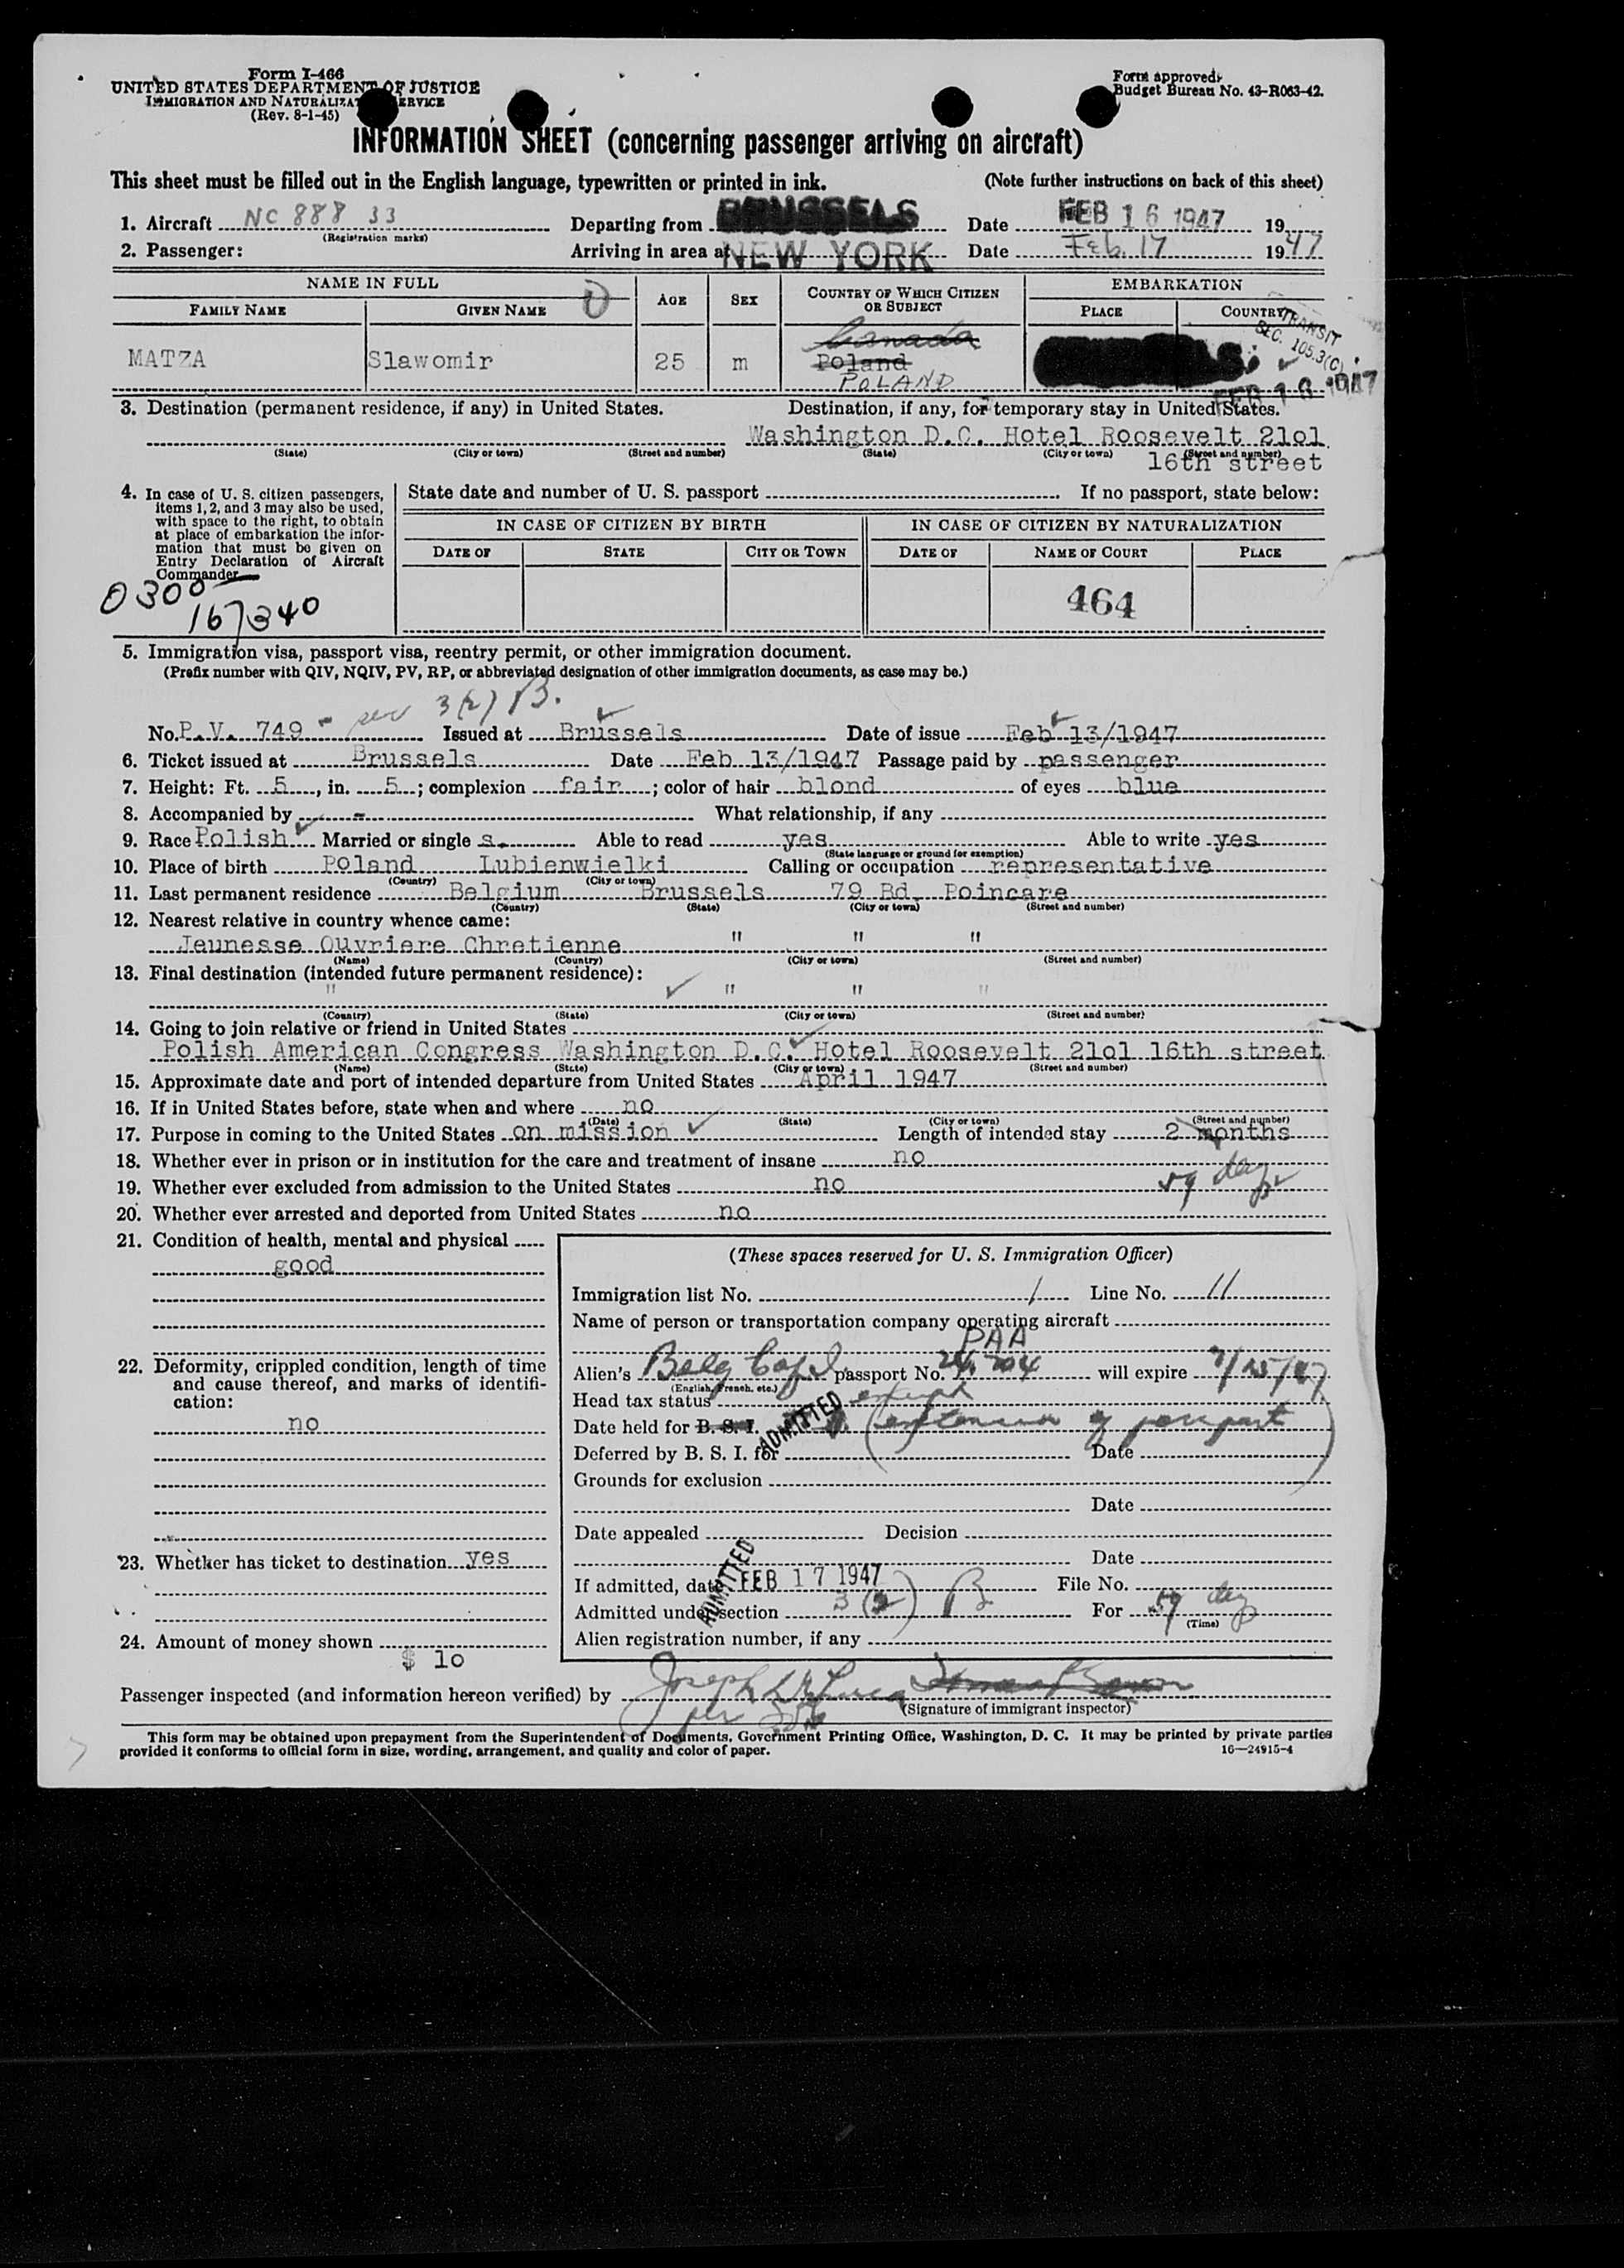 Form I-466
UNITED STATES DEPARTMENT OF JUSTICE
IMMIGRATION AND NATURALIZAT ERVICE
(Rev. 8-1-45)
Form approved.
Budget Bureau No. 43-R063-42.
INFORMATION SHEET (concerning passenger arriving on aircraft)
This sheet must be filled out in the English language, typewritten or printed in ink. (Note further instructions on back of this sheet)
1. Aircraft NC 888 33 Departing from BRUSSELS Date FEB 16 1947 19
(Registration marks)
2. Passenger: Arriving in area at NEW YORK Date Feb. 17 1947
NAME IN FULL AGE SEX COUNTRY OF WHICH CITIZEN OR SUBJECT EMBARKATION
FAMILY NAME GIVEN NAME PLACE COUNTRY
TRANSIT
SEC. 105.3(C)
Canada
MATZA Slawomir 25 m Poland
POLAND
FEB 16 1947
3. Destination (permanent residence, if any) in United States. Destination, if any, for temporary stay in United States.
Washington D.C. Hotel Roosevelt 21o1
(State) (City or town) (Street and number) (State) (City or town) (Street and number)
16th street
4. In case of U. S. citizen passengers, items 1, 2, and 3 may also be used, with space to the right, to obtain at place of embarkation the information that must be given on Entry Declaration of Aircraft Commander
State date and number of U. S. passport If no passport, state below:
IN CASE OF CITIZEN BY BIRTH IN CASE OF CITIZEN BY NATURALIZATION
DATE OF STATE CITY OR TOWN DATE OF NAME OF COURT PLACE
0300
167340
464
5. Immigration visa, passport visa, reentry permit, or other immigration document.
(Prefix number with QIV, NQIV, PV, RP, or abbreviated designation of other immigration documents, as case may be.)
3(2) B.
No. P.V. 749 Issued at Brussels Date of issue Feb 13/1947
6. Ticket issued at Brussels Date Feb 13/1947 Passage paid by passenger
7. Height: Ft. 5, in. 5; complexion fair; color of hair blond of eyes blue
8. Accompanied by - What relationship, if any
9. Race Polish Married or single s. Able to read yes Able to write yes
(State language or ground for exemption)
10. Place of birth Poland Lubienwielki Calling or occupation representative
(Country) (City or town)
11. Last permanent residence Belgium Brussels 79 Bd. Poincare
(Country) (State) (City or town) (Street and number)
12. Nearest relative in country whence came:
Jeunesse Ouvriere Chretienne " " "
(Name) (Country) (City or town) (Street and number)
13. Final destination (intended future permanent residence):
" " " "
(Country) (State) (City or town) (Street and number)
14. Going to join relative or friend in United States
Polish American Congress Washington D.C. Hotel Roosevelt 21o1 16th street
(Name) (State) (City or town) (Street and number)
15. Approximate date and port of intended departure from United States April 1947
16. If in United States before, state when and where no
(Date) (State) (City or town) (Street and number)
17. Purpose in coming to the United States on mission Length of intended stay 2 months
18. Whether ever in prison or in institution for the care and treatment of insane no
59 days
19. Whether ever excluded from admission to the United States no
20. Whether ever arrested and deported from United States no
21. Condition of health, mental and physical
good
22. Deformity, crippled condition, length of time and cause thereof, and marks of identification:
no
23. Whether has ticket to destination yes
24. Amount of money shown
$ 1o
(These spaces reserved for U. S. Immigration Officer)
Immigration list No. 1 Line No. 11
Name of person or transportation company operating aircraft
PAA
Alien's Belg passport No. will expire
(English, French, etc.)
Head tax status exempt
Date held for B. S. I. ADMITTED (extension of passport)
Deferred by B. S. I. for Date
Grounds for exclusion
Date
Date appealed Decision
Date
ADMITTED
If admitted, date FEB 17 1947 File No.
Admitted under section 3(2) B For 59 days
(Time)
Alien registration number, if any
Passenger inspected (and information hereon verified) by Joseph
(Signature of immigrant inspector)
per
This form may be obtained upon prepayment from the Superintendent of Documents, Government Printing Office, Washington, D. C. It may be printed by private parties
provided it conforms to official form in size, wording, arrangement, and quality and color of paper. 16—24915-4